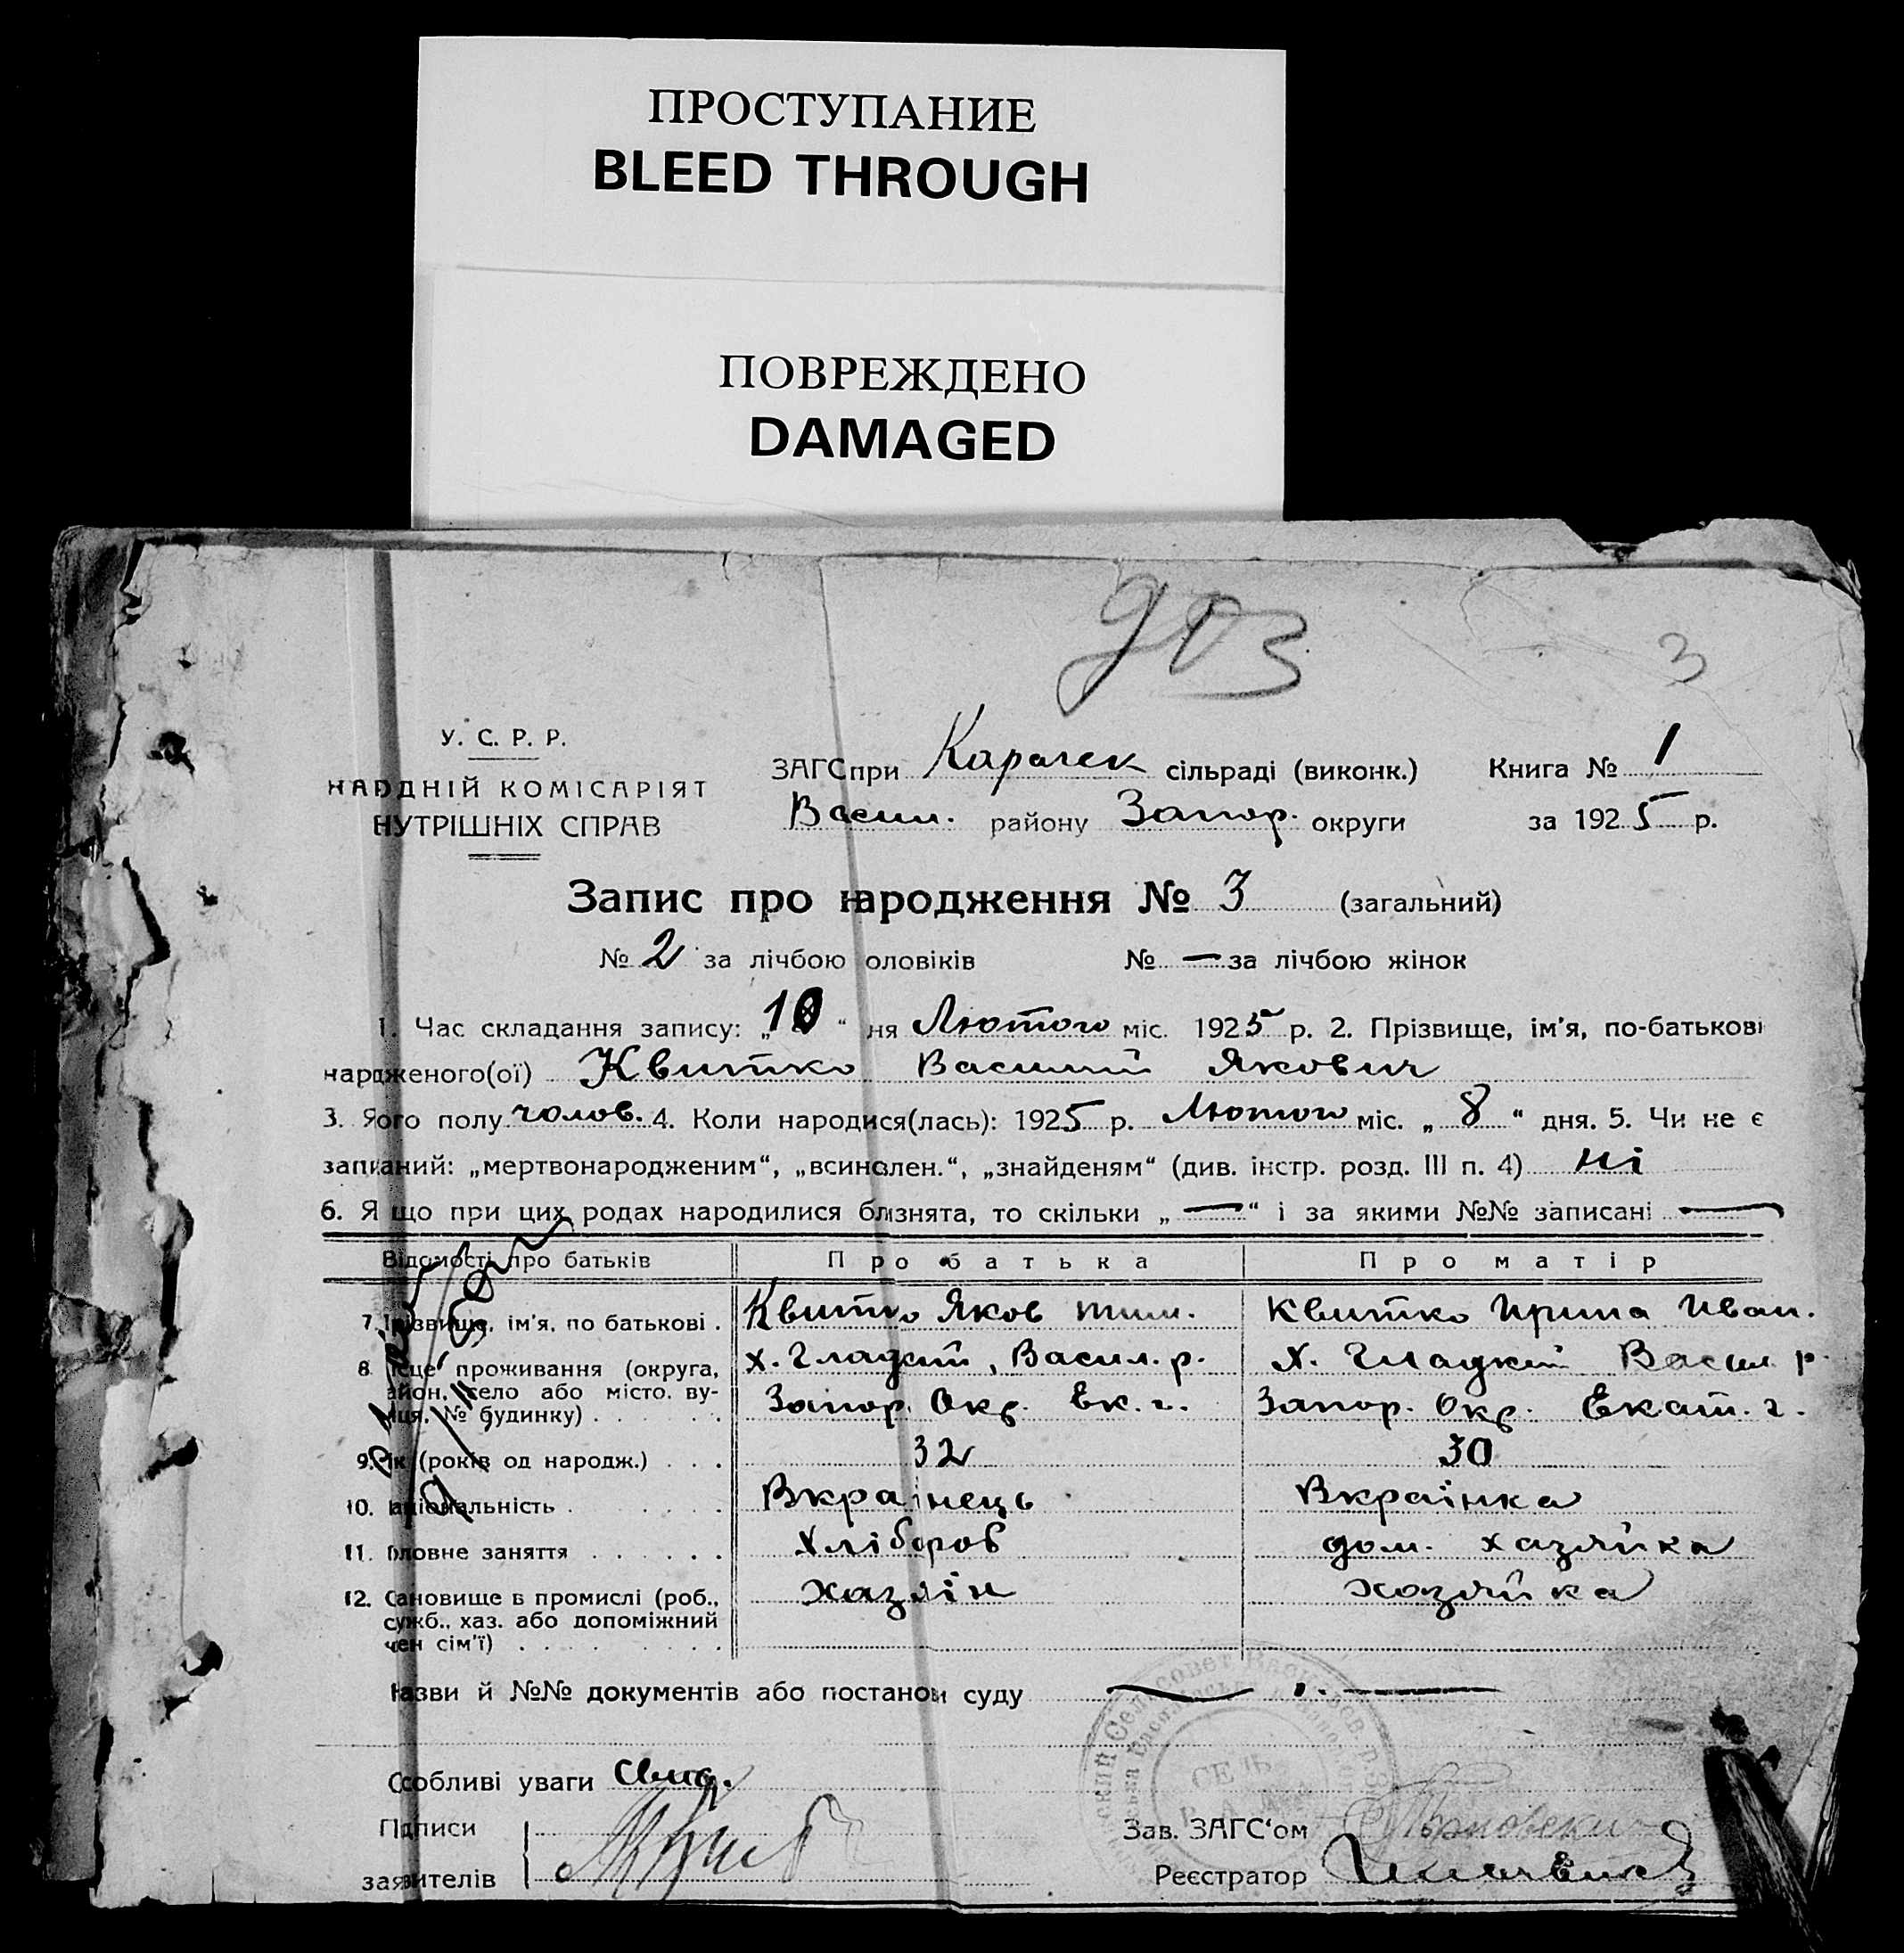 ПРОСТУПАНИЕ
BLEED THROUGH
ПОВРЕЖДЕНО
DAMAGED
3
У. С. Р. Р.
НАРДНІЙ КОМІСАРІЯТ
НУТРІШНІХ СПРАВ
ЗАГС при Карачек сільраді (виконк.) Книга № 1
Васил. району Запор. округи за 1925 р.
Запис про народження № 3 (загальний)
№ 2 за лічбою оловіків № — за лічбою жінок
1. Час складання запису: „10“ ня Лютого міс. 1925 р. 2. Прізвище, ім'я, по-батькові
нардженого(ої) Квитко Василий Якович
3. Його полу чолов. 4. Коли народися(лась): 1925 р. Лютого міс. „8“ дня. 5. Чи не є
запианий: „мертвонародженим“, „всиновлен.“, „знайденям“ (див. інстр. розд. III п. 4) ні
6. Я що при цих родах народилися близнята, то скільки „—“ і за якими №№ записані —
Відомості про батьків Про батька Про матір
7. Прізвище, ім'я, по батькові . Квитко Яков Тим. Квитко Ирина Иван.
8. ісце проживання (округа, х. Гладкий, Васил. р. х. Гладкий Васил р.
айон, село або місто, ву-
иця, № будинку) . . . . . Запор. Окр. Ек. г. Запор. Окр. Екат. г.
9. ік (років од народж.) . . . 32 30
10. Національність . . . . . Вкраінець Вкраінка
11. Головне заняття . . . . . Хлібороб дом. хазяйка
12. Сановище в промислі (роб., хазяін хозяйка
служб., хаз. або допоміжний
чен сім'ї) . . . . . . . .
Назви й №№ документів або постанови суду —
Особливі уваги
Підписи
заявителів
Зав. ЗАГС'ом
Реєстратор